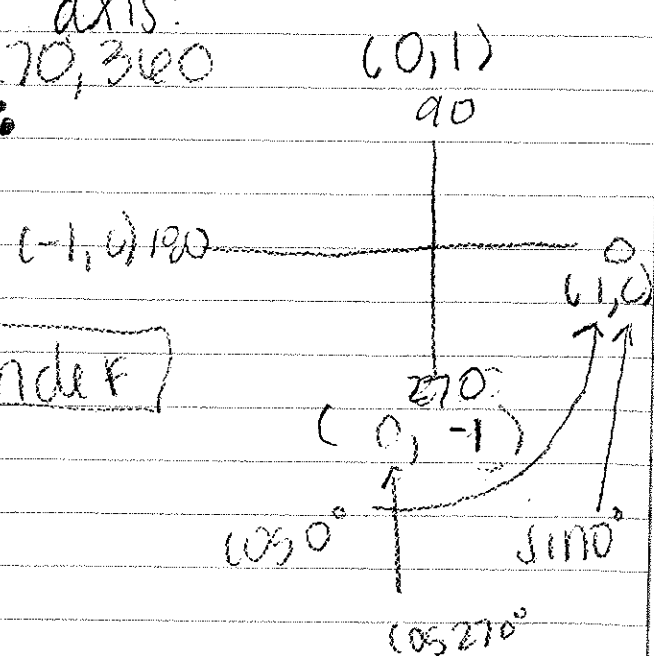 axis:
70, 360
(0,1)
90
(-1,0) 180
0
(1,0)
ndef
270
(0, -1)
cos 0°
sin 0°
cos 270°